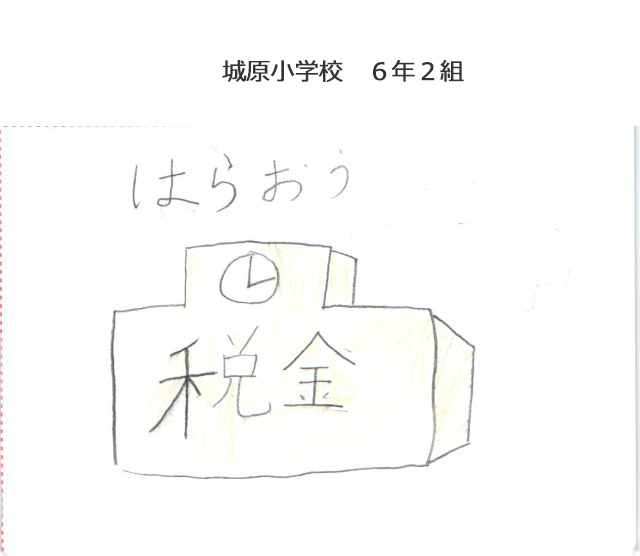 城原小学校　６年２組
はらおう
税金